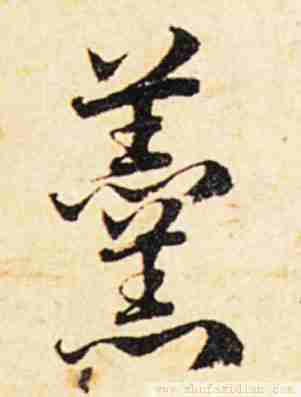 羹
www.shufazidian.com